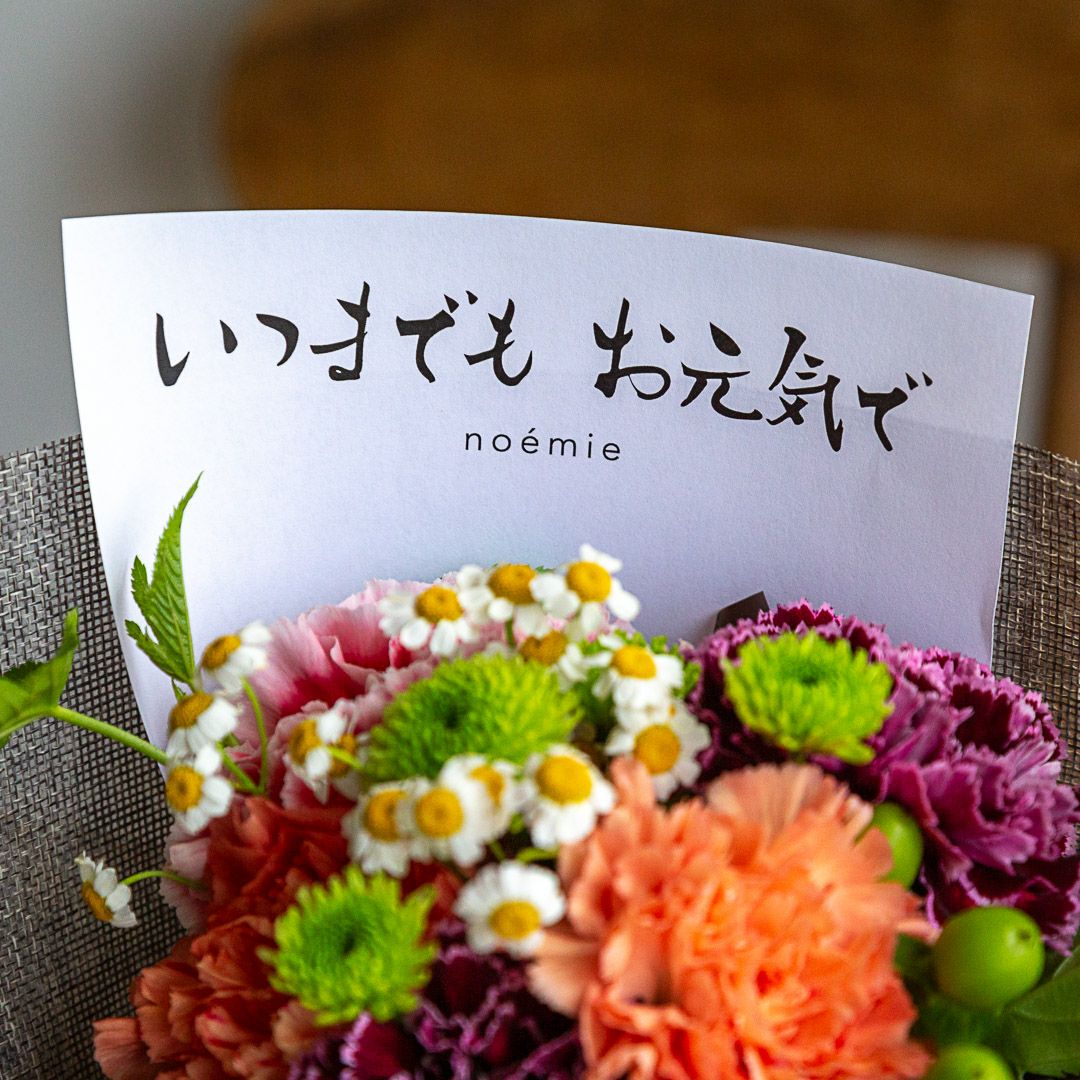 いつまでも お元気で
noémie